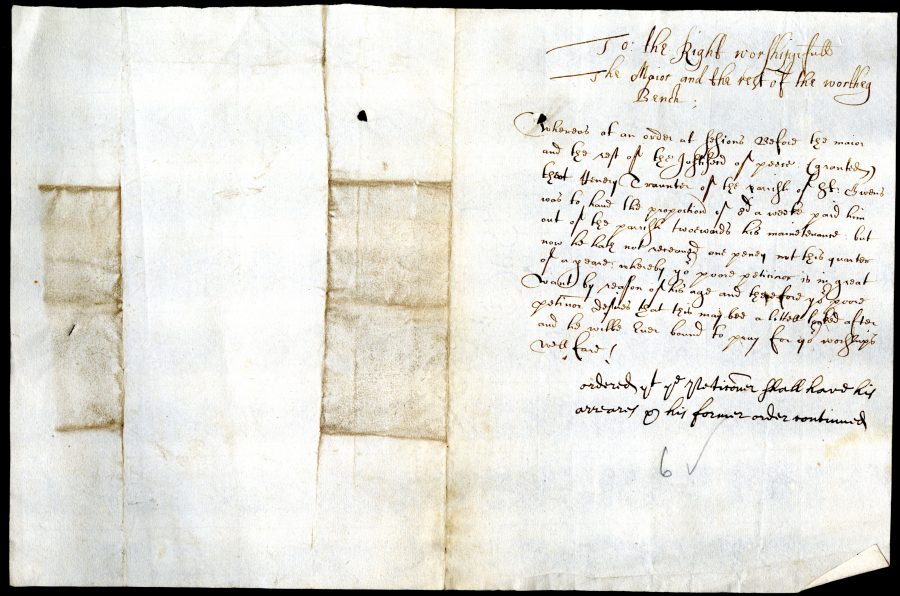 To: the Right worshippfull
The Maior and the rest of the worthey
Bench;
Whereas at an order at sesions Before the maior
and the rest of the of peece (granted)
that Henry Traunter of the parish of St: Owens
was to haue the proportion of a weeke paid him
out of the parrish twowards his maintenance: but
now he hath not receaued one peney not this quarter
of a yeare; whereby yo poore peticinor is in great
Want by reason of his age and therfore yor poore
petinor desires that this may bee a littell looked after
and he wilbe Euer bound to pray for yor worshipps
well fare /
ordered yt ye Peticoner shall haue his
arreares & his former order continued
6